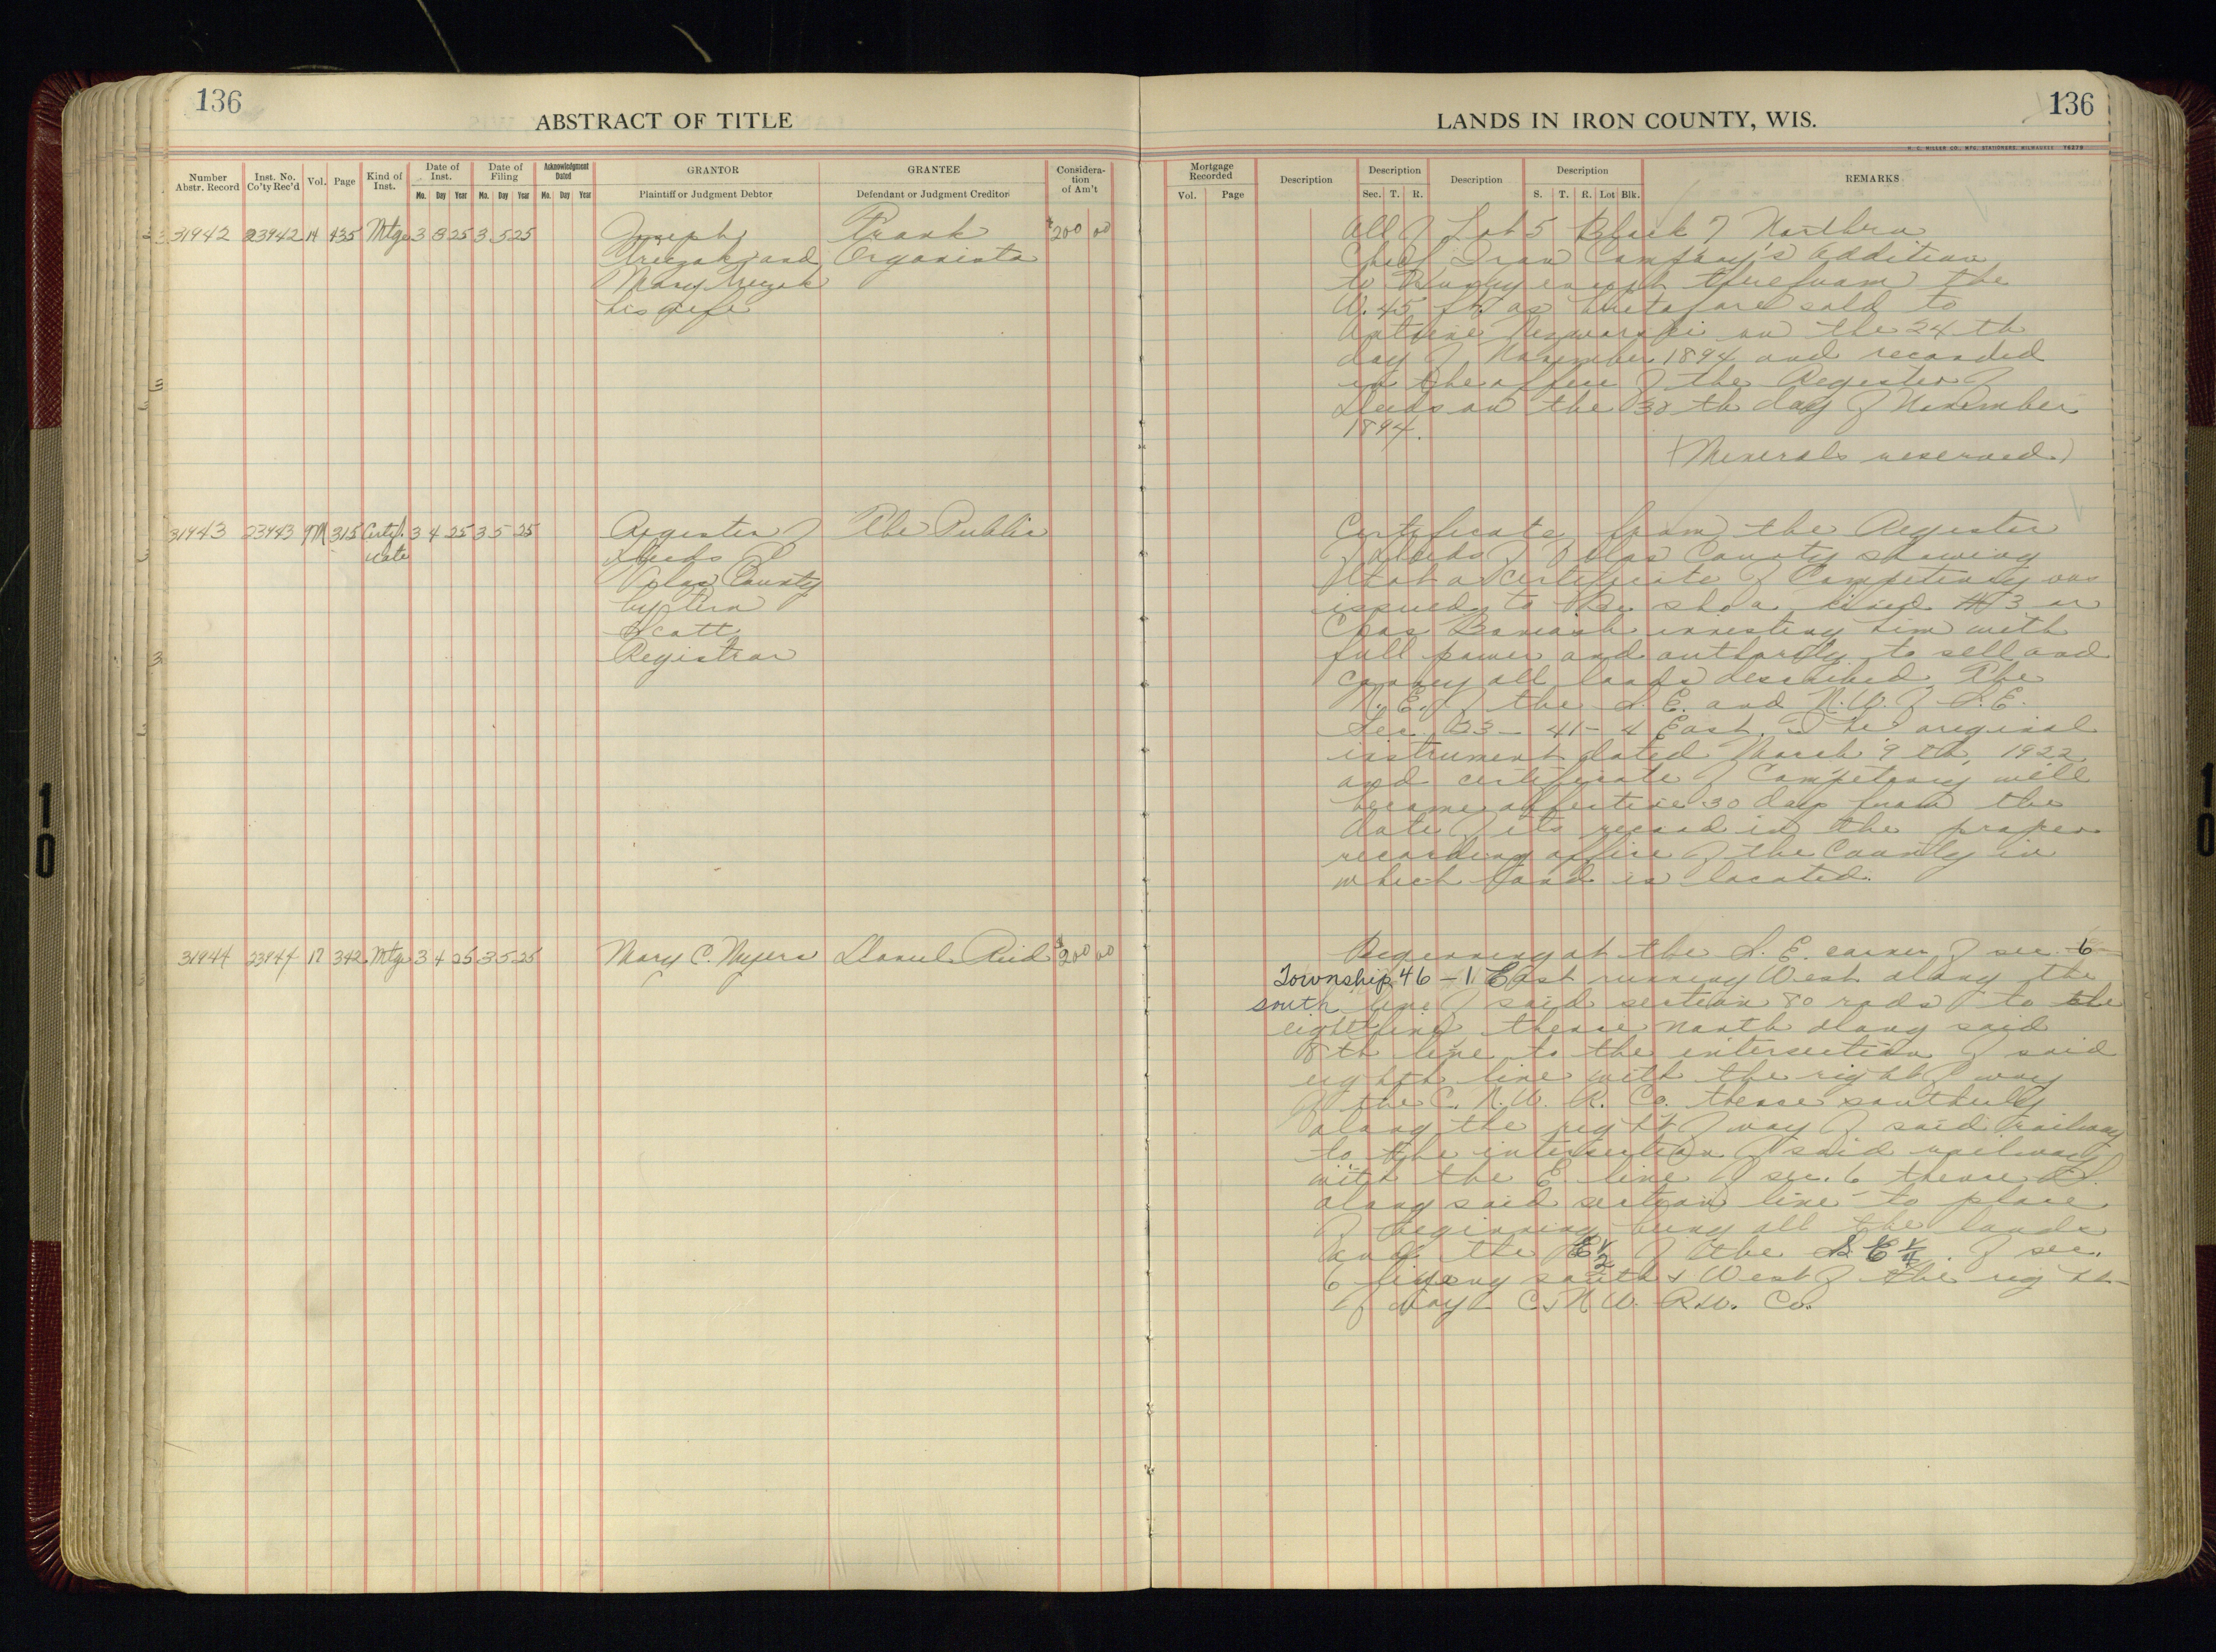 136
ABSTRACT OF TITLE
Number Abstr. Record
Inst. No. Co'ty Rec'd
Vol.
Page
Kind of Inst.
Date of Inst.
Mo. Day Year
Date of Filing
Mo. Day Year
Acknowledgment Dated
Mo. Day Year
GRANTOR
Plaintiff or Judgment Debtor
GRANTEE
Defendant or Judgment Creditor
Consideration of Am't
31942 23942 14 435 Mtge 3 3 25 3 5 25 Joseph Frank $200 00
and Organista
Mary
his wife
31943 23943 9M 315 Certif- 3 4 25 3 5 25 Register of The Public
icate Deeds of
Vilas County
by
Scott
Registrar
31944 23944 17 342 Mtge 3 4 25 3 5 25 Mary C. Myers Daniel Reid $200 00
136
LANDS IN IRON COUNTY, WIS.
H. C. MILLER CO., MFG. STATIONERS, MILWAUKEE 76278
Mortgage Recorded
Vol. Page
Description
Description
Sec. T. R.
Description
Description
S. T. R. Lot Blk.
REMARKS
All of Lot 5 Block 7 Northern
Chief Iron Company's Addition
to Hurley except therefrom the
W. 45 ft. as heretofore sold to
Antoine on the 24th
day of November 1894 and recorded
in the office of the Register of
Deeds on the 30th day of November
1894.
(Minerals reserved.)
Certificate from the Register
of Deeds of Vilas County showing
that a Certificate of Competency was
issued to #3 or
Chas investing him with
full power and authority to sell and
convey all lands described The
N. E. of the S. E. and N. W. of S. E.
Sec. 33 - 41 - 4 East. The original
instrument dated March 9th, 1922
and certificate of Competency will
become effective 30 days from the
date of its record in the proper
recording office of the County in
which land is located.
Beginning at the S. E. corner of sec. 6
Township 46 - 1 East running West along the
south line of said section 80 rods to the
eighth line thence north along said
8th line to the intersection of said
eighth line with the right of way
of the C. N. W. R. Co. thence southerly
along the right of way of said railway
to the intersection of said railway
with the E. line of sec. 6 thence S.
along said section line to place
of beginning being all the lands
and the E 1/2 of the S. E 1/4 of sec.
6 lying south & West of the right
of way C. & N. W. R. W. Co.